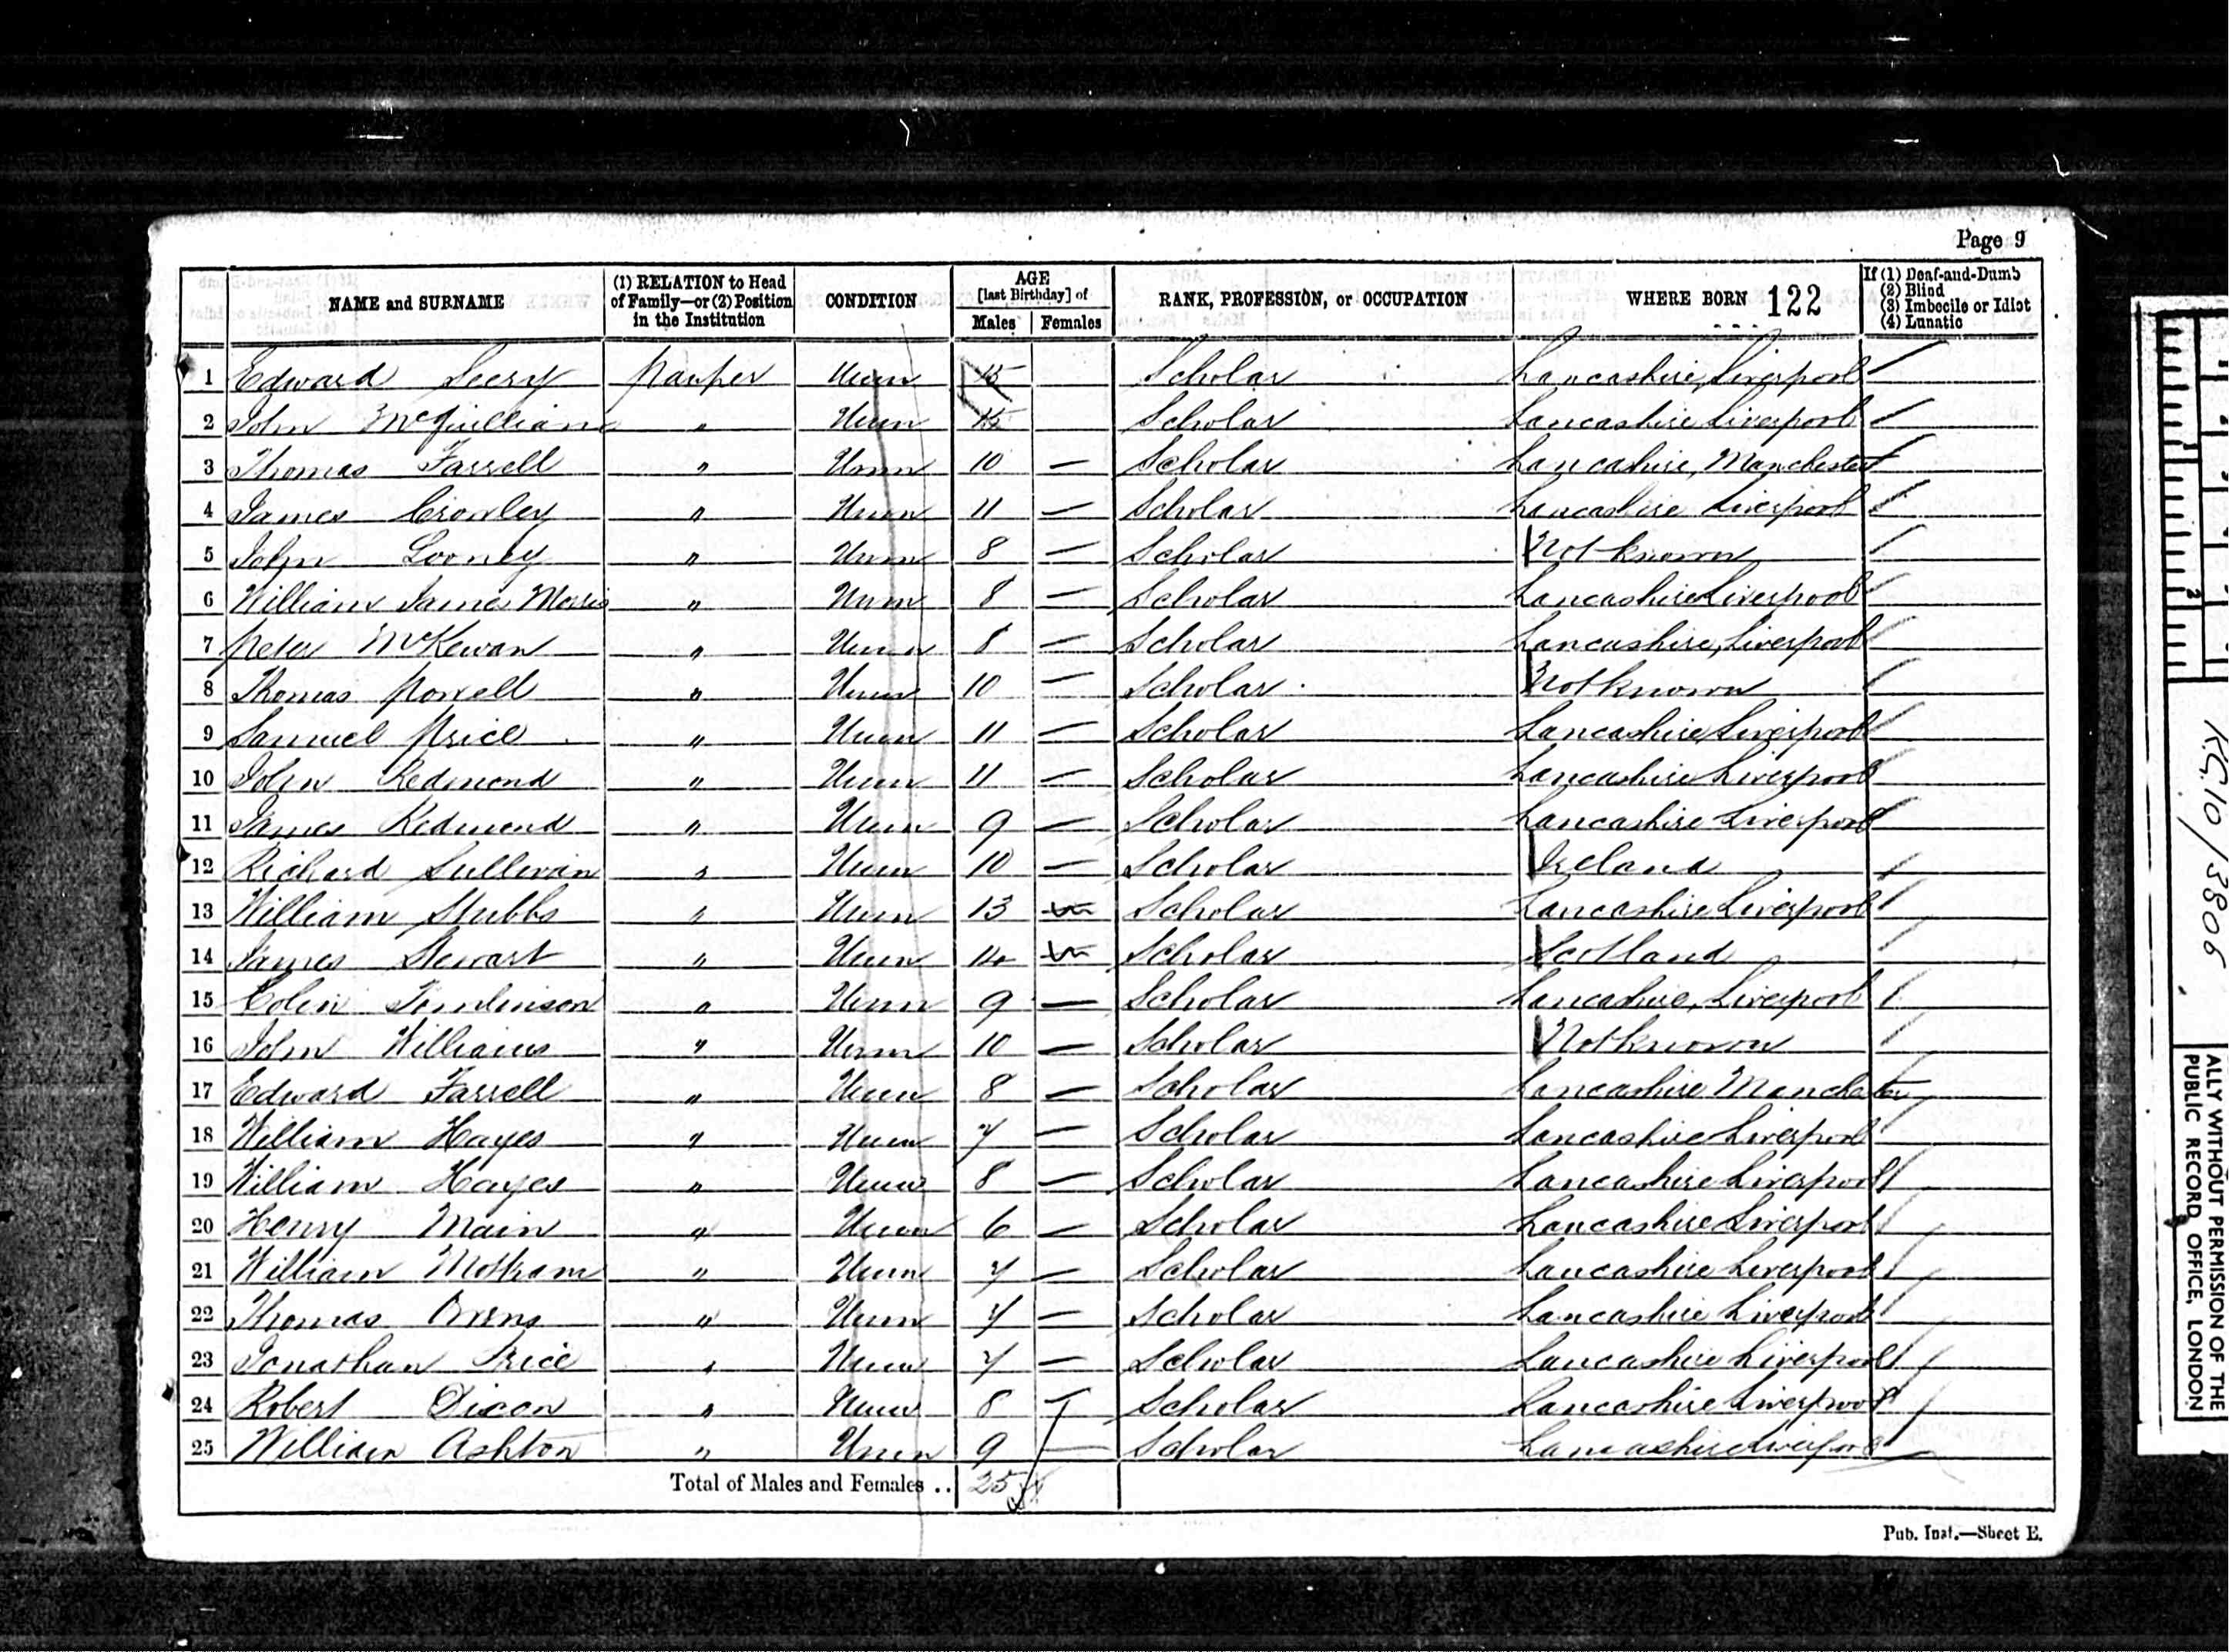 Page 9
NAME and SURNAME (1) RELATION to Head of Family—or (2) Position in the Institution CONDITION AGE [last Birthday] of Males Females RANK, PROFESSION, or OCCUPATION WHERE BORN 122 If (1) Deaf-and-Dumb (2) Blind (3) Imbecile or Idiot (4) Lunatic
1 Edward Seery Pauper Unm 15 Scholar Lancashire, Liverpool
2 John McQuilliam " Unm 15 Scholar Lancashire Liverpool
3 Thomas Farrell " Unm 10 — Scholar Lancashire, Manchester
4 James Crowley " Unm 11 — Scholar Lancashire Liverpool
5 John Looney " Unm 8 — Scholar Not known
6 William James Morris " Unm 8 — Scholar Lancashire Liverpool
7 Peter McKewan " Unm 8 — Scholar Lancashire, Liverpool
8 Thomas Powell " Unm 10 — Scholar Not known
9 Samuel Price " Unm 11 — Scholar Lancashire, Liverpool
10 John Redmond " Unm 11 — Scholar Lancashire Liverpool
11 James Redmond " Unm 9 — Scholar Lancashire Liverpool
12 Richard Sullivan " Unm 10 — Scholar Ireland
13 William Stubbs " Unm 13 Scholar Lancashire Liverpool
14 James Stewart " Unm 14 Scholar Scotland
15 Colin Tomlinson " Unm 9 — Scholar Lancashire, Liverpool
16 John Williams " Unm 10 — Scholar Not known
17 Edward Farrell " Unm 8 — Scholar Lancashire Manchester
18 William Hayes " Unm 7 — Scholar Lancashire Liverpool
19 William Hayes " Unm 8 — Scholar Lancashire Liverpool
20 Henry Main " Unm 6 — Scholar Lancashire Liverpool
21 William Mottram " Unm 7 — Scholar Lancashire Liverpool
22 Thomas Owens " Unm 7 — Scholar Lancashire Liverpool
23 Jonathan Price " Unm 7 — Scholar Lancashire Liverpool
24 Robert Dixon " Unm 8 — Scholar Lancashire Liverpool
25 William Ashton " Unm 9 — Scholar Lancashire Liverpool
Total of Males and Females .. 25
Pub. Inst.—Sheet E.
R.G. 10/3806
ALLY WITHOUT PERMISSION OF THE
PUBLIC RECORD OFFICE, LONDON